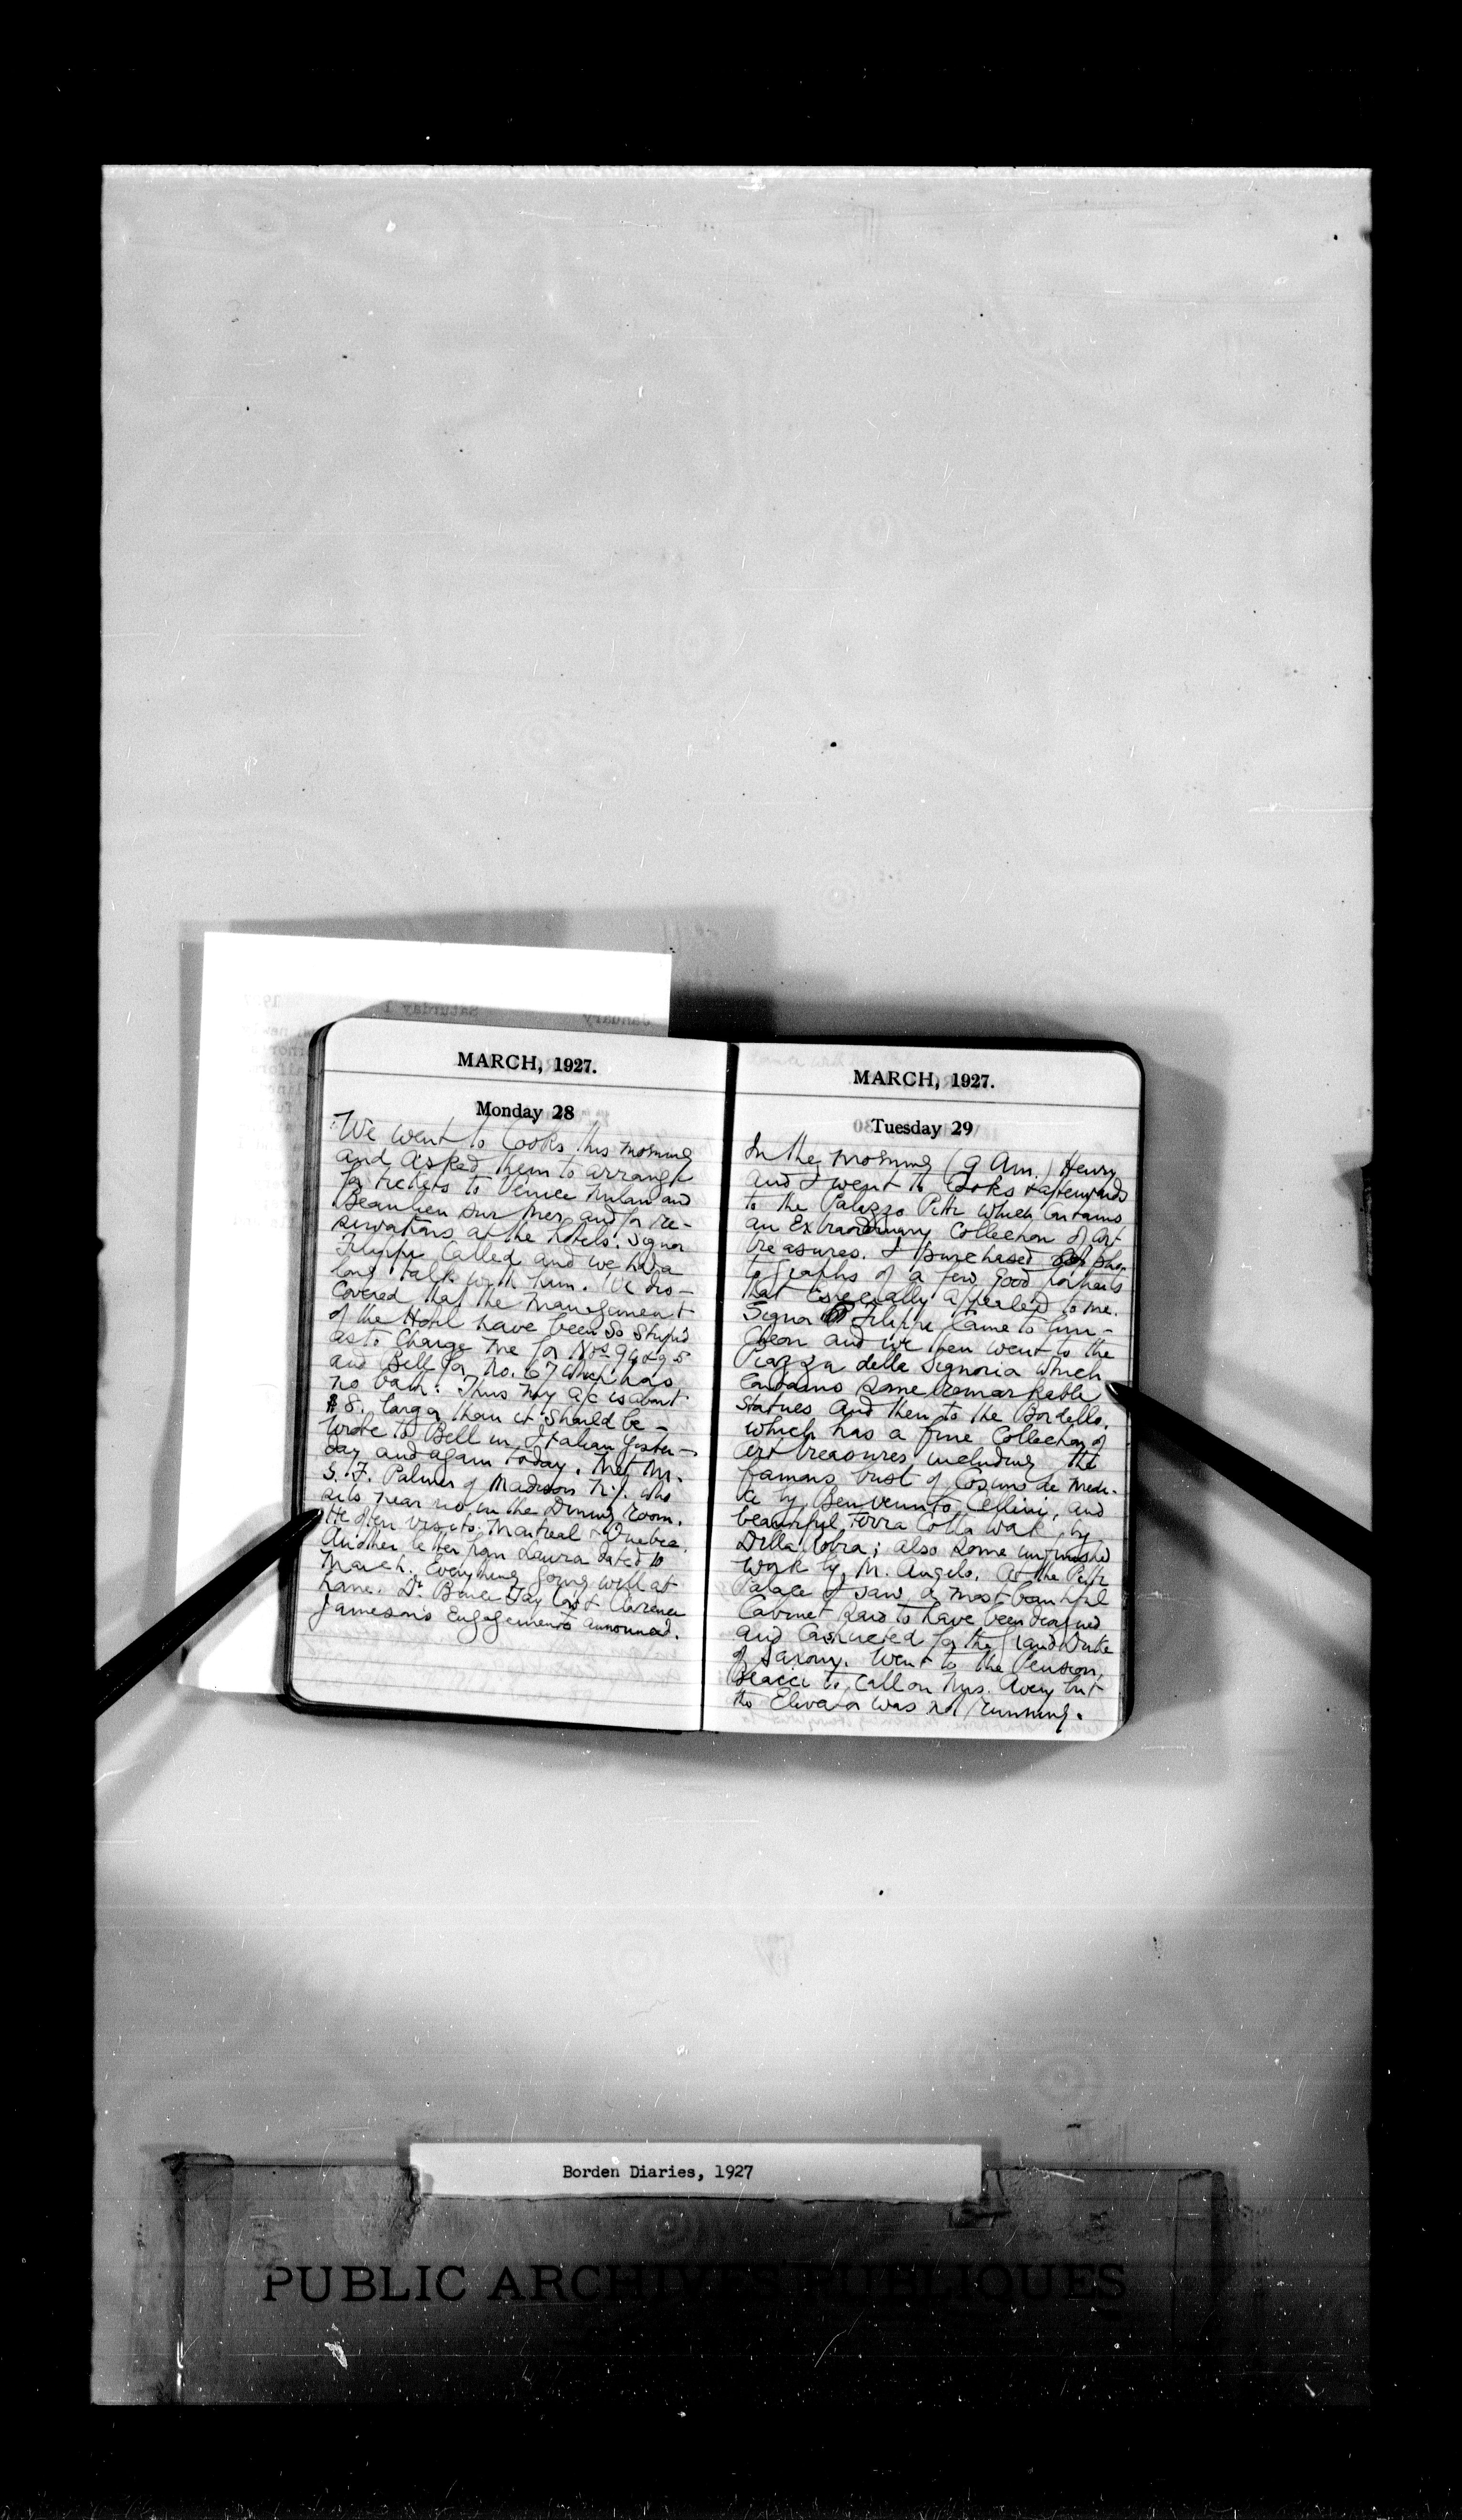 MARCH, 1927.
Monday 28
We went to Cooks this morning
and asked them to arrange
for tickets to Venice Milan and
Beaulieu sur Mer and for re-
servations at the hotels. Signor
Filippi called and we had a
long talk with him. We dis-
covered that the management
of the Hotel have been so stupid
as to charge me for Nos 94 & 95
and Bell for No. 67 which has
no bath: Thus my a/c is about
$8. larger than it should be -
Wrote to Bell in Italian yester-
day and again today. Met Mr.
S. F. Palmer of Madison N.J. who
sits near us in the Dining room.
He often visits Montreal & Quebec.
Another letter from Laura dated 10
March. Everything going well at
home. Dr. Bruce Taylor & Clarence
Jameson's Engagements announced.
MARCH, 1927.
Tuesday 29
In the morning (9 Am.) Henry
and I went to Cooks & afterwards
to the Palazzo Pitti which contains
an Extraordinary Collection of art
treasures. I purchased pho-
tographs of a few good portraits
that Especially appealed to me.
Signor Filippi came to lun-
cheon and we then went to the
Piazza della Signoria which
contains some remarkable
statues and then to the Bordello.
which has a fine Collection of
art treasures including the
famous bust of Cosimo de Medi-
ci by Benvenuto Cellini, and
beautiful Terra Cotta work by
Della Robia; also some unfinished
work by M. Angelo. At the Pitti
Palace I saw a most beautiful
Cabinet said to have been designed
and constructed for the Grand Duke
of Saxony. Went to the Pension
Beacci to call on Mrs. Avery but
the Elevator was not running.
Borden Diaries, 1927
PUBLIC ARCHIVES PUBLIQUES